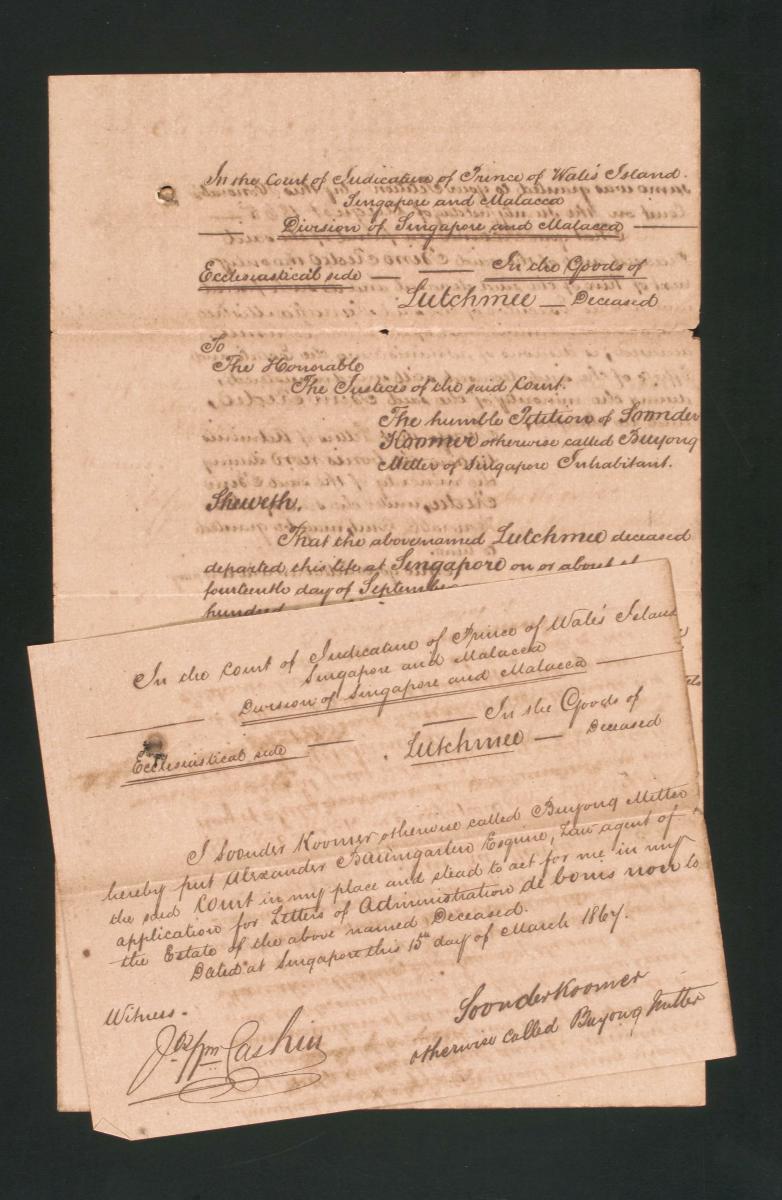 In the Court of Judicature of Prince of Wales Island
Singapore and Malacca
Division of Singapore and Malacca
Ecclesiastical side — In the Goods of
Lutchmee — Deceased
To
The Honorable
The Justices of the said Court.
The humble Petition of Soonder
Koomer otherwise called Buyong
Mitter of Singapore Inhabitant.
Sheweth.
That the abovenamed Lutchmee deceased
departed this life at Singapore on or about
fourteenth day of September
hundred
In the Court of Judicature of Prince of Wales Island
Singapore and Malacca
Division of Singapore and Malacca
In the Goods of
Ecclesiastical side — Lutchmee — Deceased
I Soonder Koomer otherwise called Buyong Mitter
hereby put Alexander Baumgarten Esquire, Law agent of
the said Court in my place and stead to act for me in my
application for Letters of Administration de bonis non to
the Estate of the above named Deceased.
Dated at Singapore this 15th day of March 1867.
Witness.
Soonder Koomer
Cashin
otherwise called Buyong Mitter